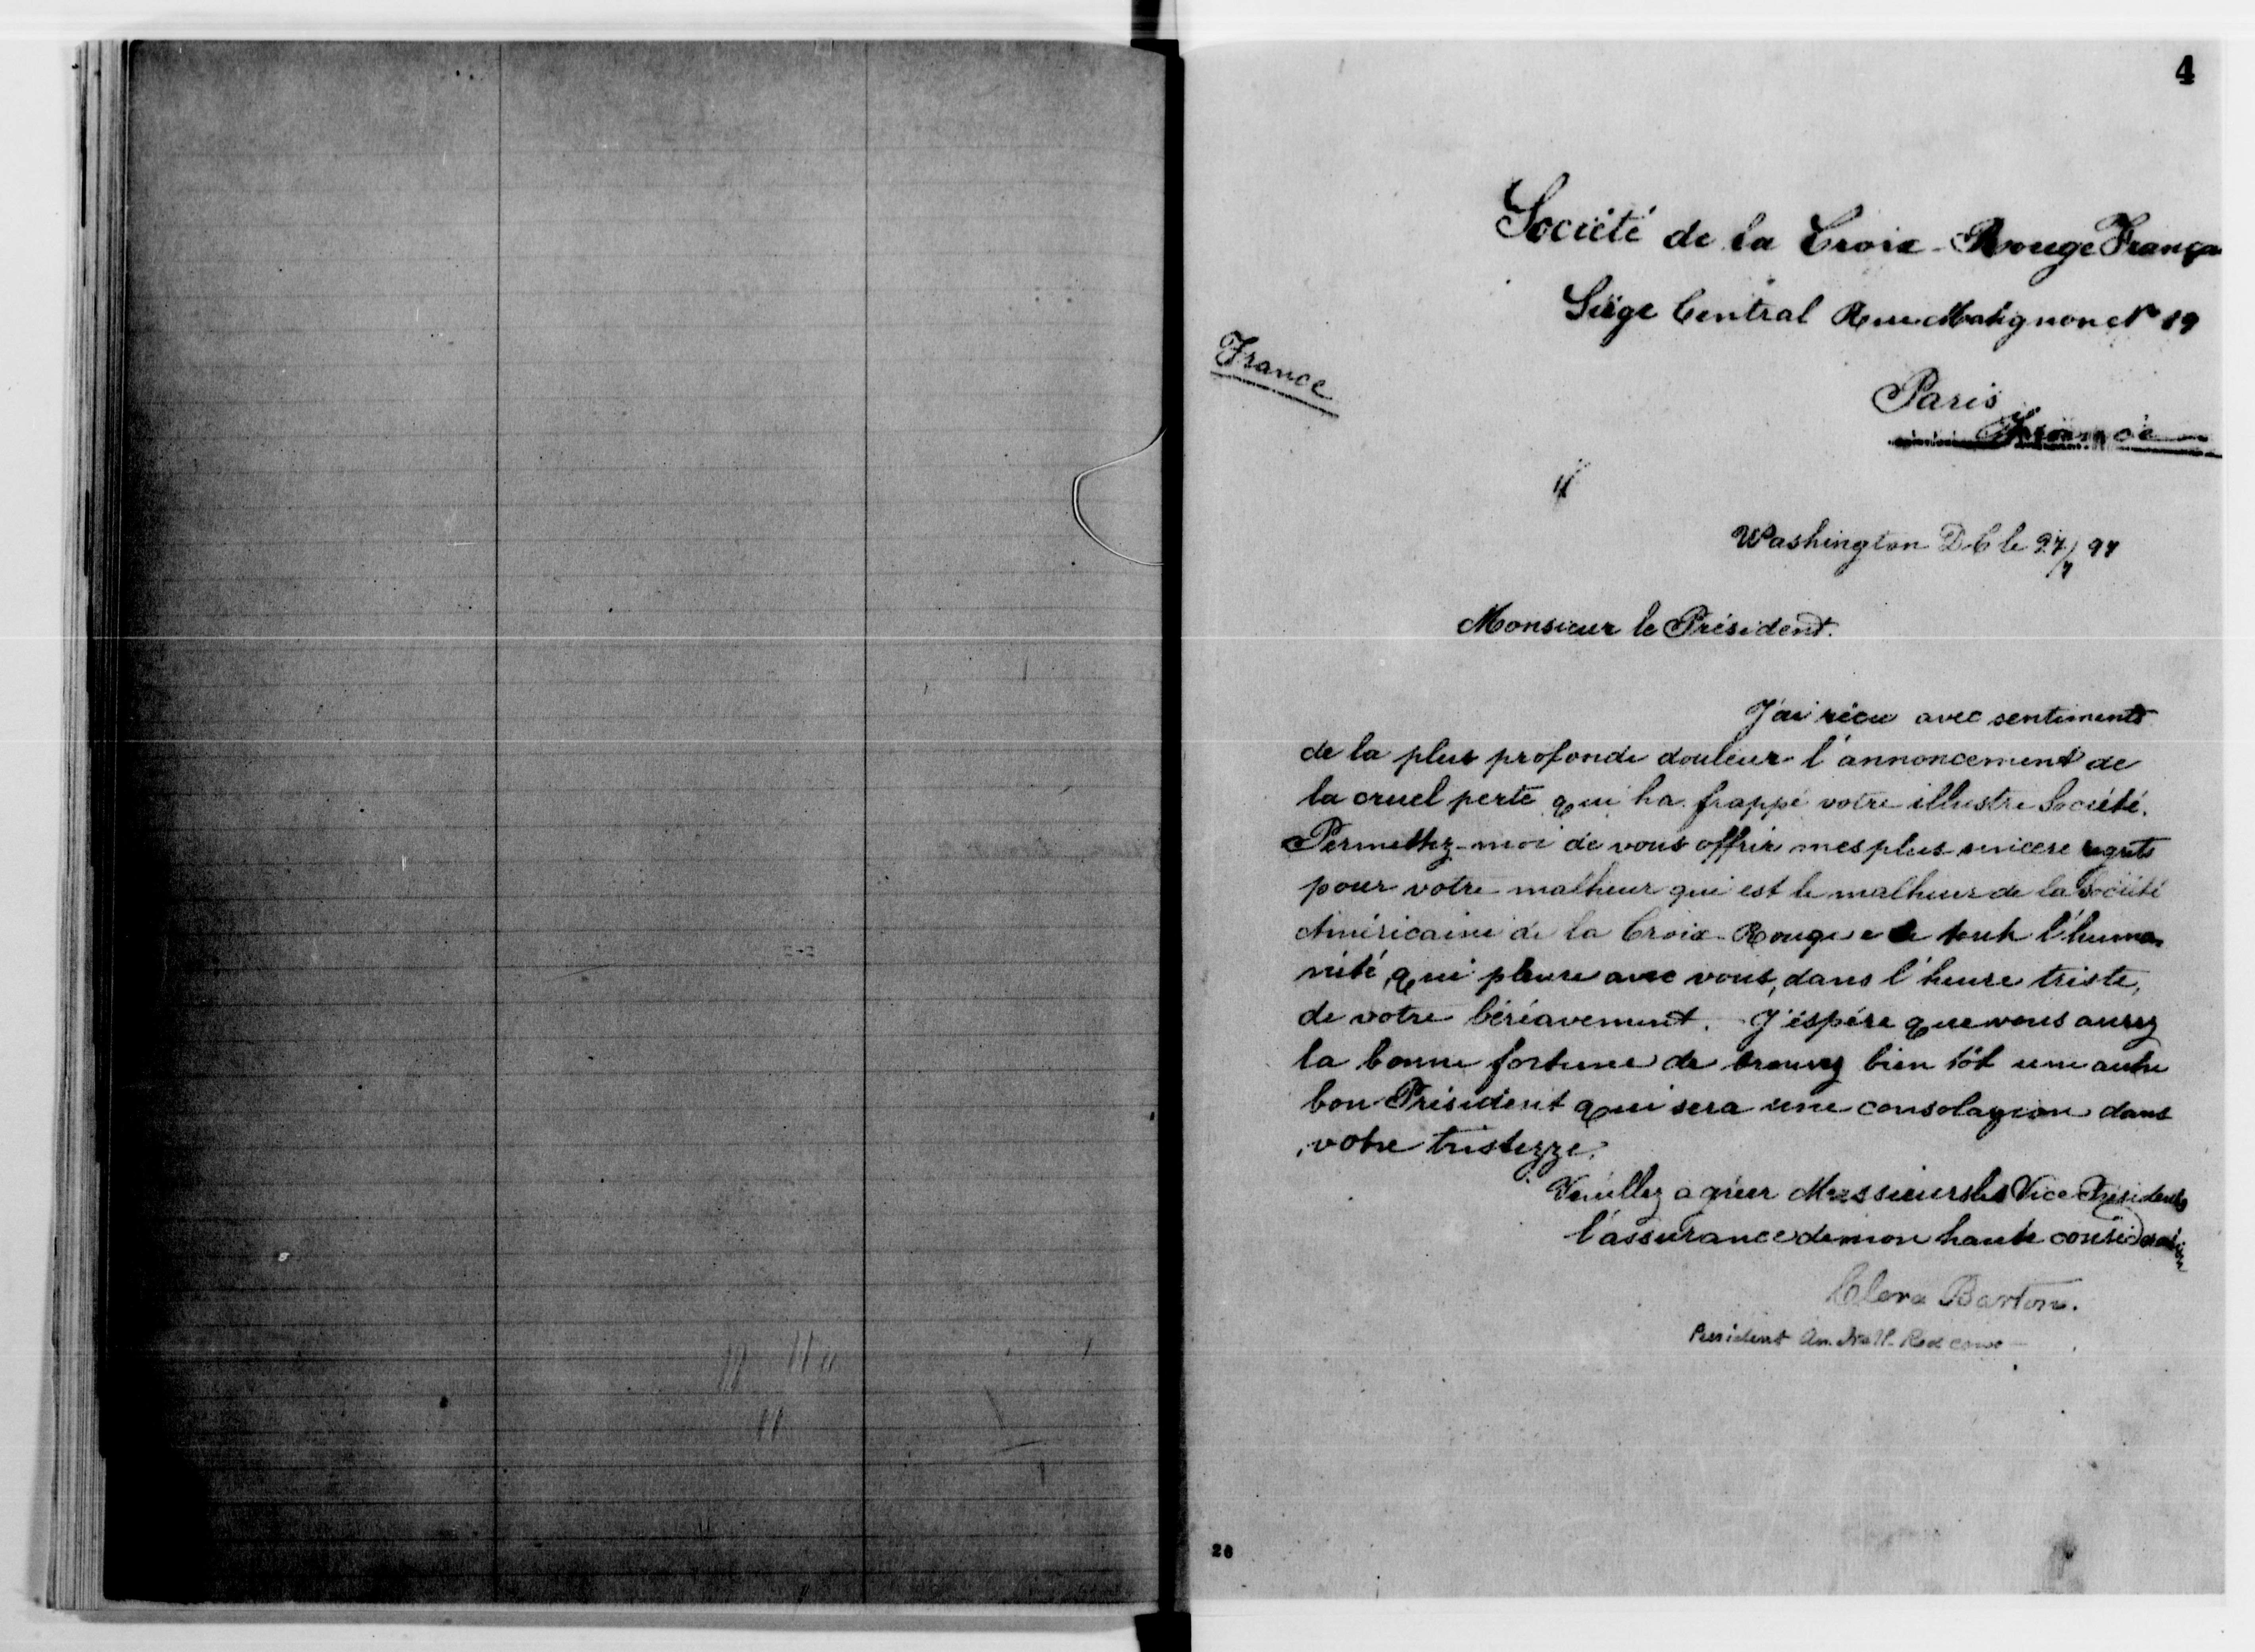 4
Société de la Croix-Rouge França
Siège Central Rue Matignon No 19
France
Paris
France
Washington D.C le 27/7 97
Monsieur le Président.
J'ai récu avec sentiments
de la plus profonde douleur l'annoncement de
la cruel perte qui ha frappé votre illustre Société.
Permettez-moi de vous offrir mes plus sincere regrets
pour votre malheur qui est le malheur de la Société
Américaine de la Croix-Rouge e de tout l'huma
nité, qui pleure avec vous, dans l'heure triste,
de votre béréavement. J'éspére que vous aurez
la bonne fortune de trouvez bien tôt une autre
bon Président qui sera une consolazion dans
votre tristezze.
Veuillez agréer Messieurs les Vice Présidents
l'assurance de mon haute considération
Clara Barton.
President Am. Natl. Red Cross
26